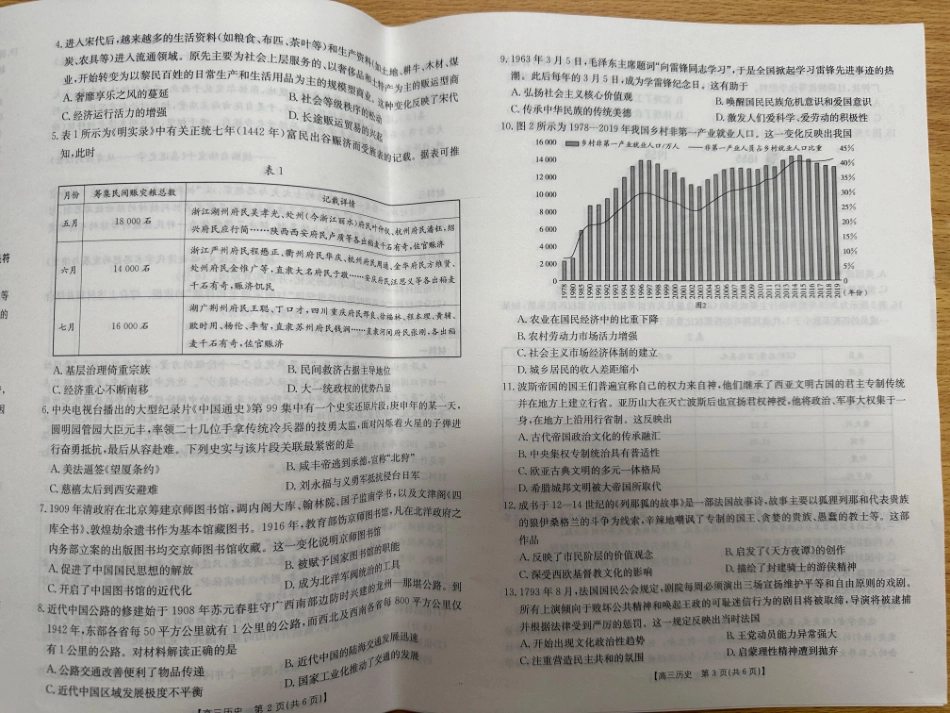 4.进入宋代后,越来越多的生活资料(如粮食、布匹、茶叶等)和生产资料(如土地、耕牛、木材、煤
炭、农具等)进入流通领域。原先主要为社会上层服务的、以奢侈品和土特产为主的贩运型商
业,开始转变为以黎民百姓的日常生产和生活用品为主的规模型商业。这种变化反映了宋代
A.奢靡享乐之风的蔓延
B.社会等级秩序的松动
C.经济运行活力的增强
D.长途贩运贸易的兴起
5.表1所示为《明实录》中有关正统七年(1442年)富民出谷赈济而受旌表的记载。据表可推
知,此时
表1
月份 筹集民间赈灾粮总数 记载详情
五月 18 000石 浙江湖州府民吴孝光、处州(今浙江丽水)府民叶仲仪、杭州府民潘钰,绍
兴府民应行简……陕西西安府民卢广等各出稻麦千石有奇,佐官赈济
六月 14 000石 浙江严州府民程懋正、衢州府民华庆、杭州府民周通、金华府民方雄贤、
处州府民金惟广等,直隶大名府民于敬……安庆府民汪思义等各出稻麦
千石有奇,赈济饥民
七月 16 000石 湖广荆州府民王聪、丁口才,四川重庆府民鄢良、徐福林、程本理、黄辅、
欧时用、杨伦、李智,直隶苏州府民钱渊……直隶河间府民张刚,各出稻
麦千石有奇,佐官赈济
A.基层治理倚重宗族
B.民间救济占据主导地位
C.经济重心不断南移
D.大一统政权的优势凸显
6.中央电视台播出的大型纪录片《中国通史》第99集中有一个史实还原片段:庚申年的某一天,
圆明园管园大臣元丰,率领二十几位手拿传统冷兵器的技勇太监,面对闪烁着火星的子弹进
行奋勇抵抗,最后从容赴难。下列史实与该片段关联最紧密的是
A.美法逼签《望厦条约》
B.咸丰帝逃到承德,宣称“北狩”
C.慈禧太后到西安避难
D.刘永福与义勇军抵抗侵台日军
7.1909年清政府在北京筹建京师图书馆,调内阁大库、翰林院、国子监南学书,以及文津阁《四
库全书》、敦煌劫余遗书作为基本馆藏图书。1916年,教育部饬京师图书馆,凡在北洋政府之
内务部立案的出版图书均交京师图书馆收藏。这一变化说明京师图书馆
A.促进了中国国民思想的解放
B.被赋予国家图书馆的职能
C.开启了中国图书馆的近代化
D.成为北洋军阀统治的工具
8.近代中国公路的修建始于1908年苏元春驻守广西南部边防时兴建的龙州—那堪公路。到
1942年,东部各省每50平方公里就有1公里的公路,而西北及西南各省每800平方公里仅
有1公里的公路。对材料解读正确的是
A.公路交通改善便利了物品传递
B.近代中国的陆海交通发展迅速
C.近代中国区域发展极度不平衡
D.国家工业化推动了交通的发展
【高三历史 第2页(共6页)】
9.1963年3月5日,毛泽东主席题词“向雷锋同志学习”,于是全国掀起学习雷锋先进事迹的热
潮。此后每年的3月5日,成为学雷锋纪念日。这有助于
A.弘扬社会主义核心价值观
B.唤醒国民民族危机意识和爱国意识
C.传承中华民族的传统美德
D.激发人们爱科学、爱劳动的积极性
10.图2所示为1978—2019年我国乡村非第一产业就业人口。这一变化反映出我国
乡村非第一产业就业人口/万人 非第一产业人员占乡村就业人口比重
16 000 45%
14 000 40%
12 000 35%
10 000 30%
8 000 25%
6 000 20%
4 000 15%
2 000 10%
5%
0 0
1978 1980 1985 1990 1991 1992 1993 1994 1995 1996 1997 1998 1999 2000 2001 2002 2003 2004 2005 2006 2007 2008 2009 2010 2011 2012 2013 2014 2015 2016 2017 2018 2019 (年份)
图2
A.农业在国民经济中的比重下降
B.农村劳动力市场活力增强
C.社会主义市场经济体制的建立
D.城乡居民的收入差距缩小
11.波斯帝国的国王们普遍宣称自己的权力来自神,他们继承了西亚文明古国的君主专制传统
并在地方上建立行省。亚历山大在灭亡波斯后也宣扬君权神授,他将政治、军事大权集于一
身,在地方上沿用行省制。这反映出
A.古代帝国政治文化的传承融汇
B.中央集权专制统治具有普适性
C.欧亚古典文明的多元一体格局
D.希腊城邦文明被大帝国所取代
12.成书于12—14世纪的《列那狐的故事》是一部法国故事诗,故事主要以狐狸列那和代表贵族
的狼伊桑格兰的斗争为线索,辛辣地嘲讽了专制的国王、贪婪的贵族、愚蠢的教士等。这部
作品
A.反映了市民阶层的价值观念
B.启发了《天方夜谭》的创作
C.深受西欧基督教文化的影响
D.描绘了封建骑士的游侠精神
13.1793年8月,法国国民公会规定,剧院每周必须演出三场宣扬维护平等和自由原则的戏剧。
所有上演倾向于败坏公共精神和唤起王政的可耻迷信行为的剧目将被取缔,导演将被逮捕
并根据法律受到严厉的惩罚。这一规定反映出当时法国
A.开始出现文化政治性趋势
B.王党动员能力异常强大
C.注重营造民主共和的氛围
D.启蒙理性精神遭到抛弃
【高三历史 第3页(共6页)】